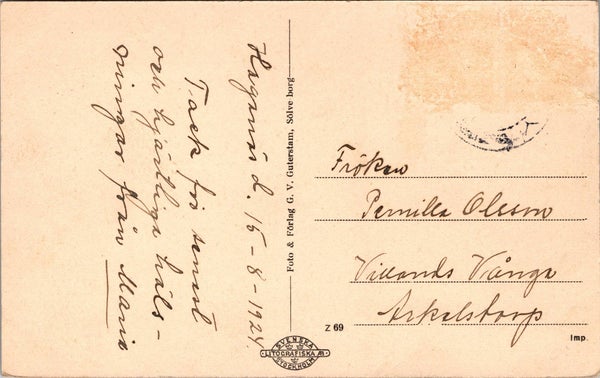 Haganäs d. 15-8-1924.
Tack för senast
och hjärtliga häls-
ningar från Maria
Foto & Förlag G. V. Guterstam, Sölve borg
Fröken
Pernilla Olsson
Villands Vånga
Arkelstorp
Z 69
Imp.
SVENSKA
LITOGRAFISKA AB
STOCKHOLM